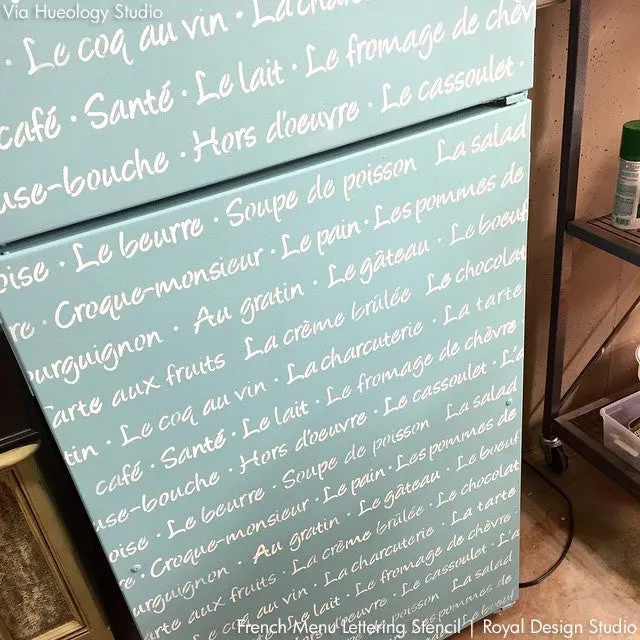 Via Hueology Studio
· Le coq au vin · La
café · Santé · Le lait · Le fromage de chèv
use-bouche · Hors d'oeuvre · Le cassoulet ·
oise · Le beurre · Soupe de poisson La salad
re · Croque-monsieur · Le pain · Les pommes de
ourguignon · Au gratin · Le gâteau · Le boeuf
arte aux fruits La crème brûlée Le chocolat
tin · Le coq au vin · La charcuterie · La tarte
café · Santé · Le lait · Le fromage de chèvre
use-bouche · Hors d'oeuvre · Le cassoulet · L'a
oise · Le beurre · Soupe de poisson La salad
re · Croque-monsieur · Le pain · Les pommes de
urguignon · Au gratin · Le gâteau · Le boeuf
arte aux fruits · La crème brûlée · Le chocolat
La charcuterie · La tarte
Le lait · Le fromage de chèvre
Le cassoulet · L'a
La salad
pommes de
Le boeuf
French Menu Lettering Stencil | Royal Design Studio